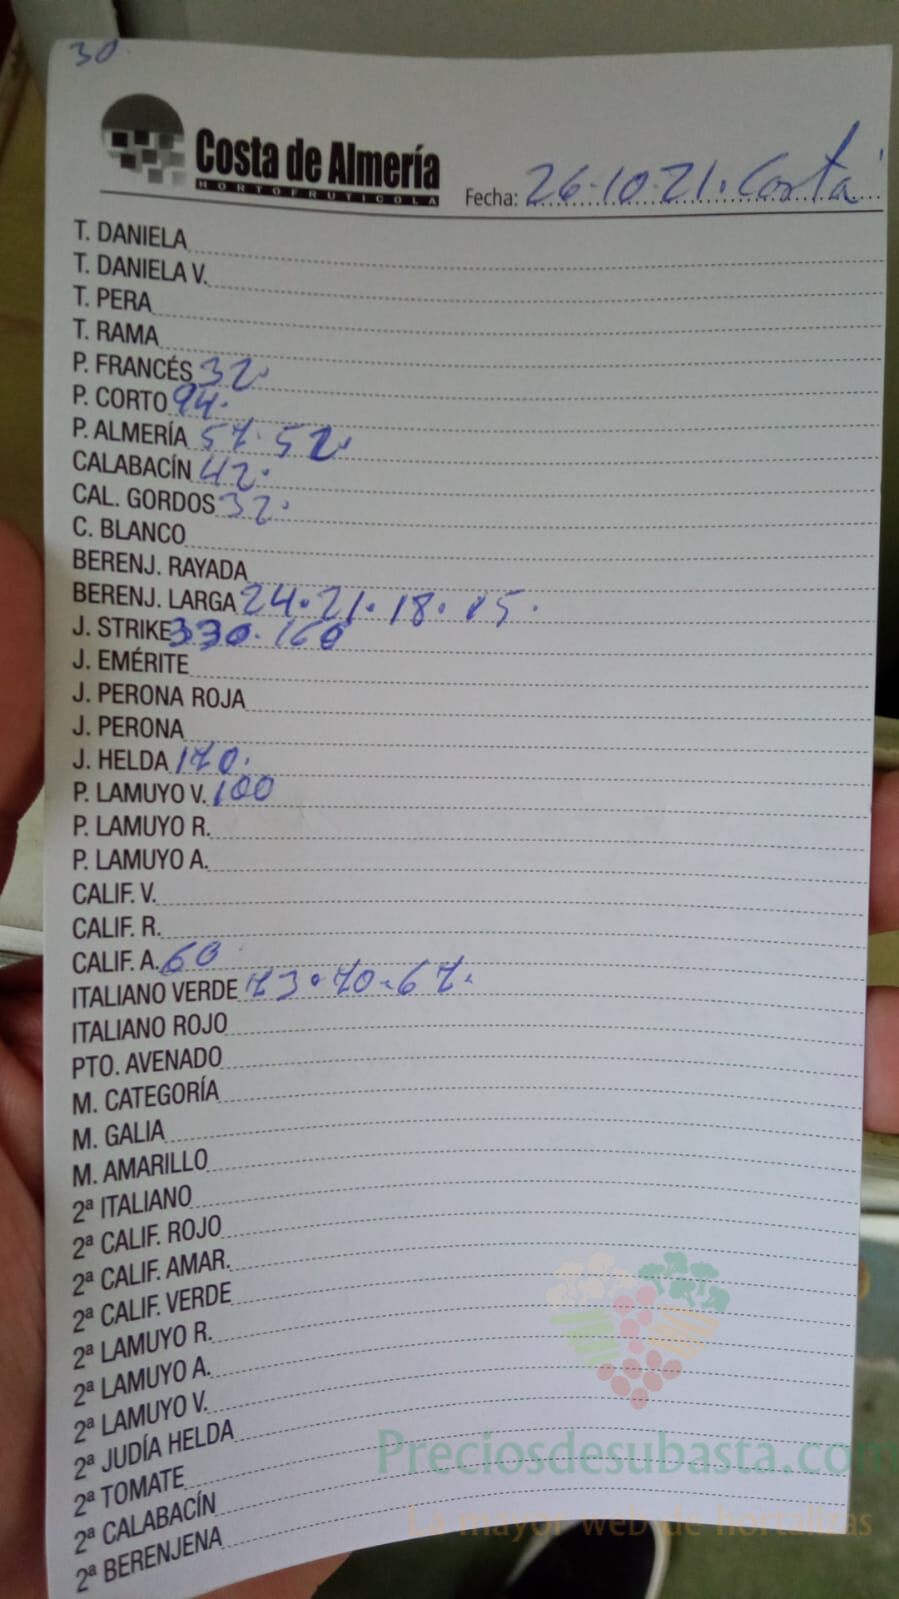 30.
Costa de Almería
HORTOFRUTICOLA
Fecha: 26.10.21. Costa
T. DANIELA
T. DANIELA V.
T. PERA
T. RAMA
P. FRANCÉS 32.
P. CORTO 94.
P. ALMERÍA 57. 52.
CALABACÍN 42.
CAL. GORDOS 32.
C. BLANCO
BERENJ. RAYADA
BERENJ. LARGA 24. 21. 18. 15.
J. STRIKE 330. 160
J. EMÉRITE
J. PERONA ROJA
J. PERONA
J. HELDA 170.
P. LAMUYO V. 100
P. LAMUYO R.
P. LAMUYO A.
CALIF. V.
CALIF. R.
CALIF. A. 60
ITALIANO VERDE 73. 70. 67.
ITALIANO ROJO
PTO. AVENADO
M. CATEGORÍA
M. GALIA
M. AMARILLO
2ª ITALIANO
2ª CALIF. ROJO
2ª CALIF. AMAR.
2ª CALIF. VERDE
2ª LAMUYO R.
2ª LAMUYO A.
2ª LAMUYO V.
2ª JUDÍA HELDA
2ª TOMATE
2ª CALABACÍN
2ª BERENJENA
Preciosdesubasta.com
La mayor web de hortalizas